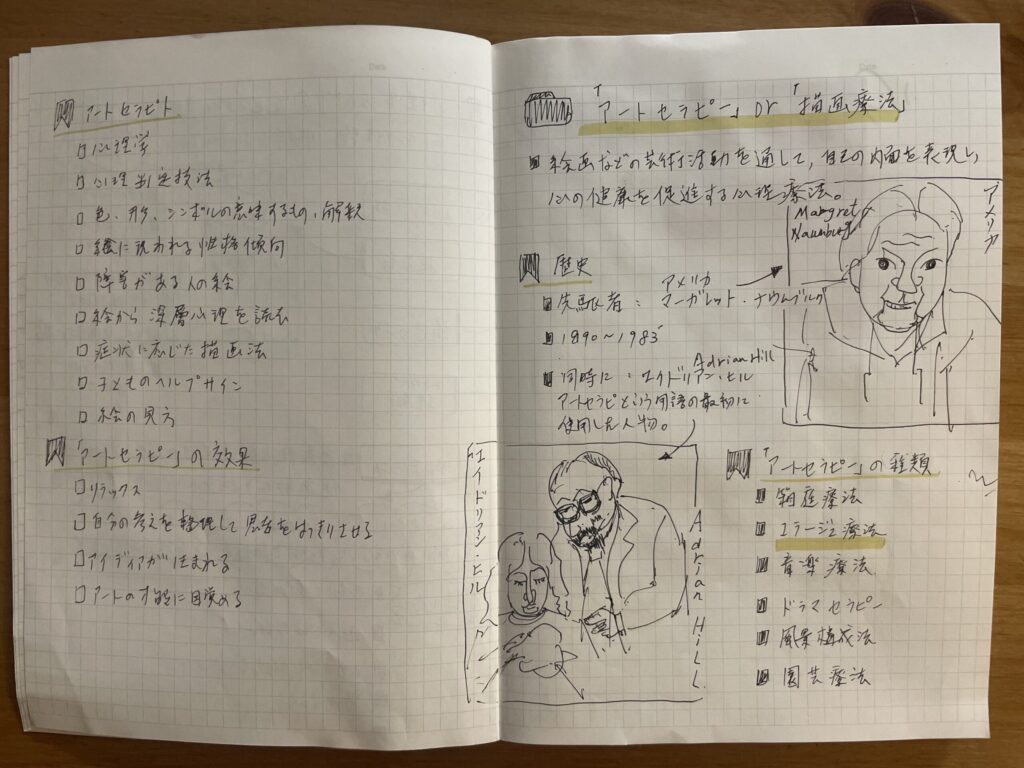 アートセラピスト
心理学
心理判定技法
色、形、シンボルの意味するもの、解釈
絵に現われる性格傾向
障害がある人の絵
絵から深層心理を読む
症状に応じた描画法
子どものヘルプサイン
絵の見方
「アートセラピー」の効果
リラックス
自分の考えを整理して思考をはっきりさせる
アイディアが生まれる
アートの才能に目覚める
「アートセラピー」or「描画療法」
絵画などの芸術活動を通して、自己の内面を表現し、
心の健康を促進する心理療法。
Margret
Naumburg
アメリカ
歴史
アメリカ
先駆者:マーガレット・ナウムブルグ
1890~1983
Adrian Hill
同時に:エイドリアン・ヒル
アートセラピという用語の最初に
使用した人物。
エイドリアン・ヒル
Adrian HiLL
「アートセラピー」の種類
箱庭療法
コラージュ療法
音楽療法
ドラマセラピー
風景構成法
園芸療法